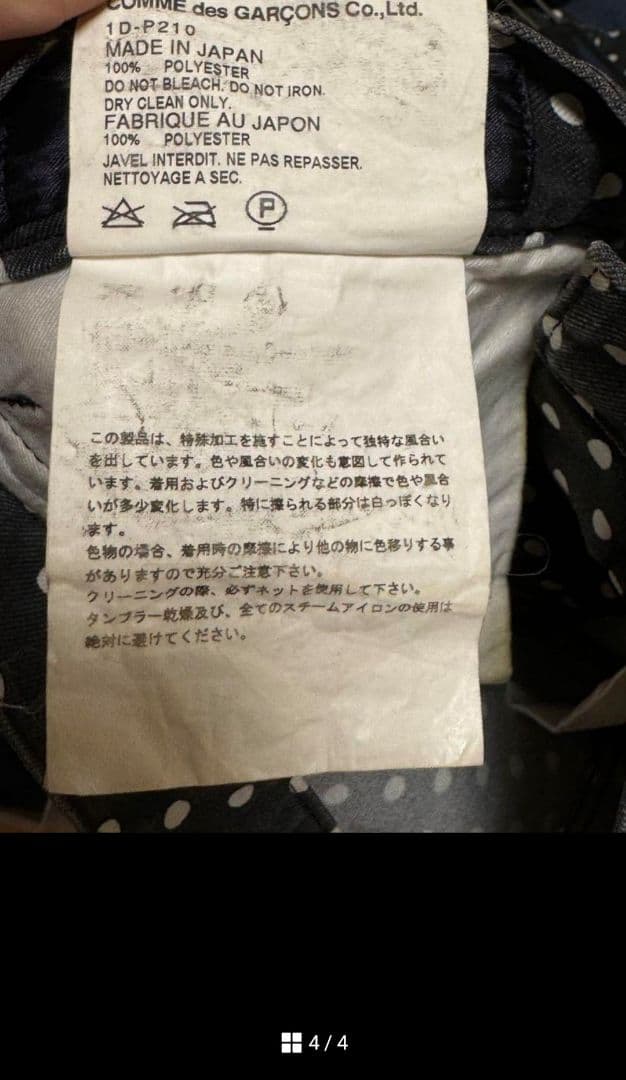 COMME des GARÇONS Co.,Ltd.
1D-P210
MADE IN JAPAN
100% POLYESTER
DO NOT BLEACH. DO NOT IRON.
DRY CLEAN ONLY.
FABRIQUE AU JAPON
100% POLYESTER
JAVEL INTERDIT. NE PAS REPASSER.
NETTOYAGE A SEC.
P
この製品は、特殊加工を施すことによって独特な風合い
を出しています。色や風合いの変化も意図して作られて
います。着用およびクリーニングなどの摩擦で色や風合
いが多少変化します。特に擦られる部分は白っぽくなり
ます。
色物の場合、着用時の摩擦により他の物に色移りする事
がありますので充分ご注意下さい。
クリーニングの際、必ずネットを使用して下さい。
タンブラー乾燥及び、全てのスチームアイロンの使用は
絶対に避けてください。
4/4